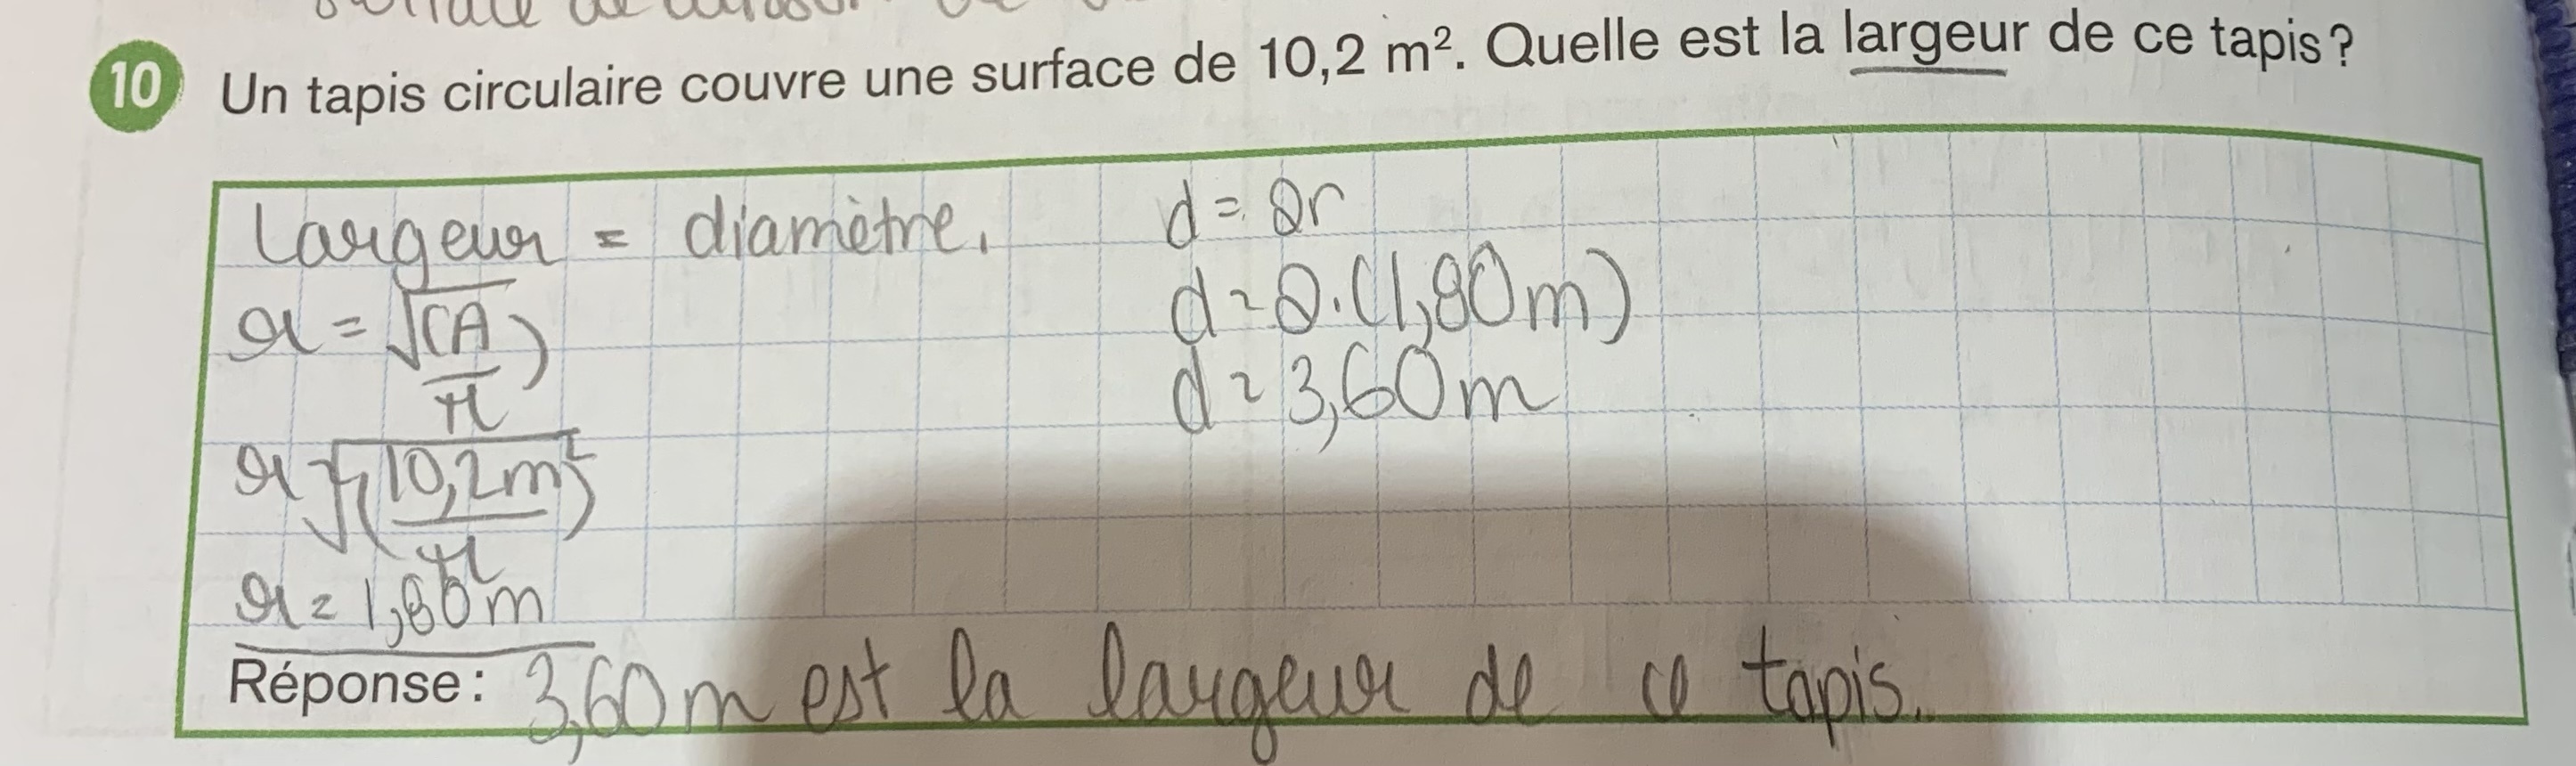 10 Un tapis circulaire couvre une surface de 10,2 m². Quelle est la largeur de ce tapis ?
Largeur = diamètre.
r = √(A/π)
r = √(10,2m²/π)
r = 1,80m
d = 2r
d = 2·(1,80m)
d = 3,60m
Réponse : 3,60m est la largeur de ce tapis.